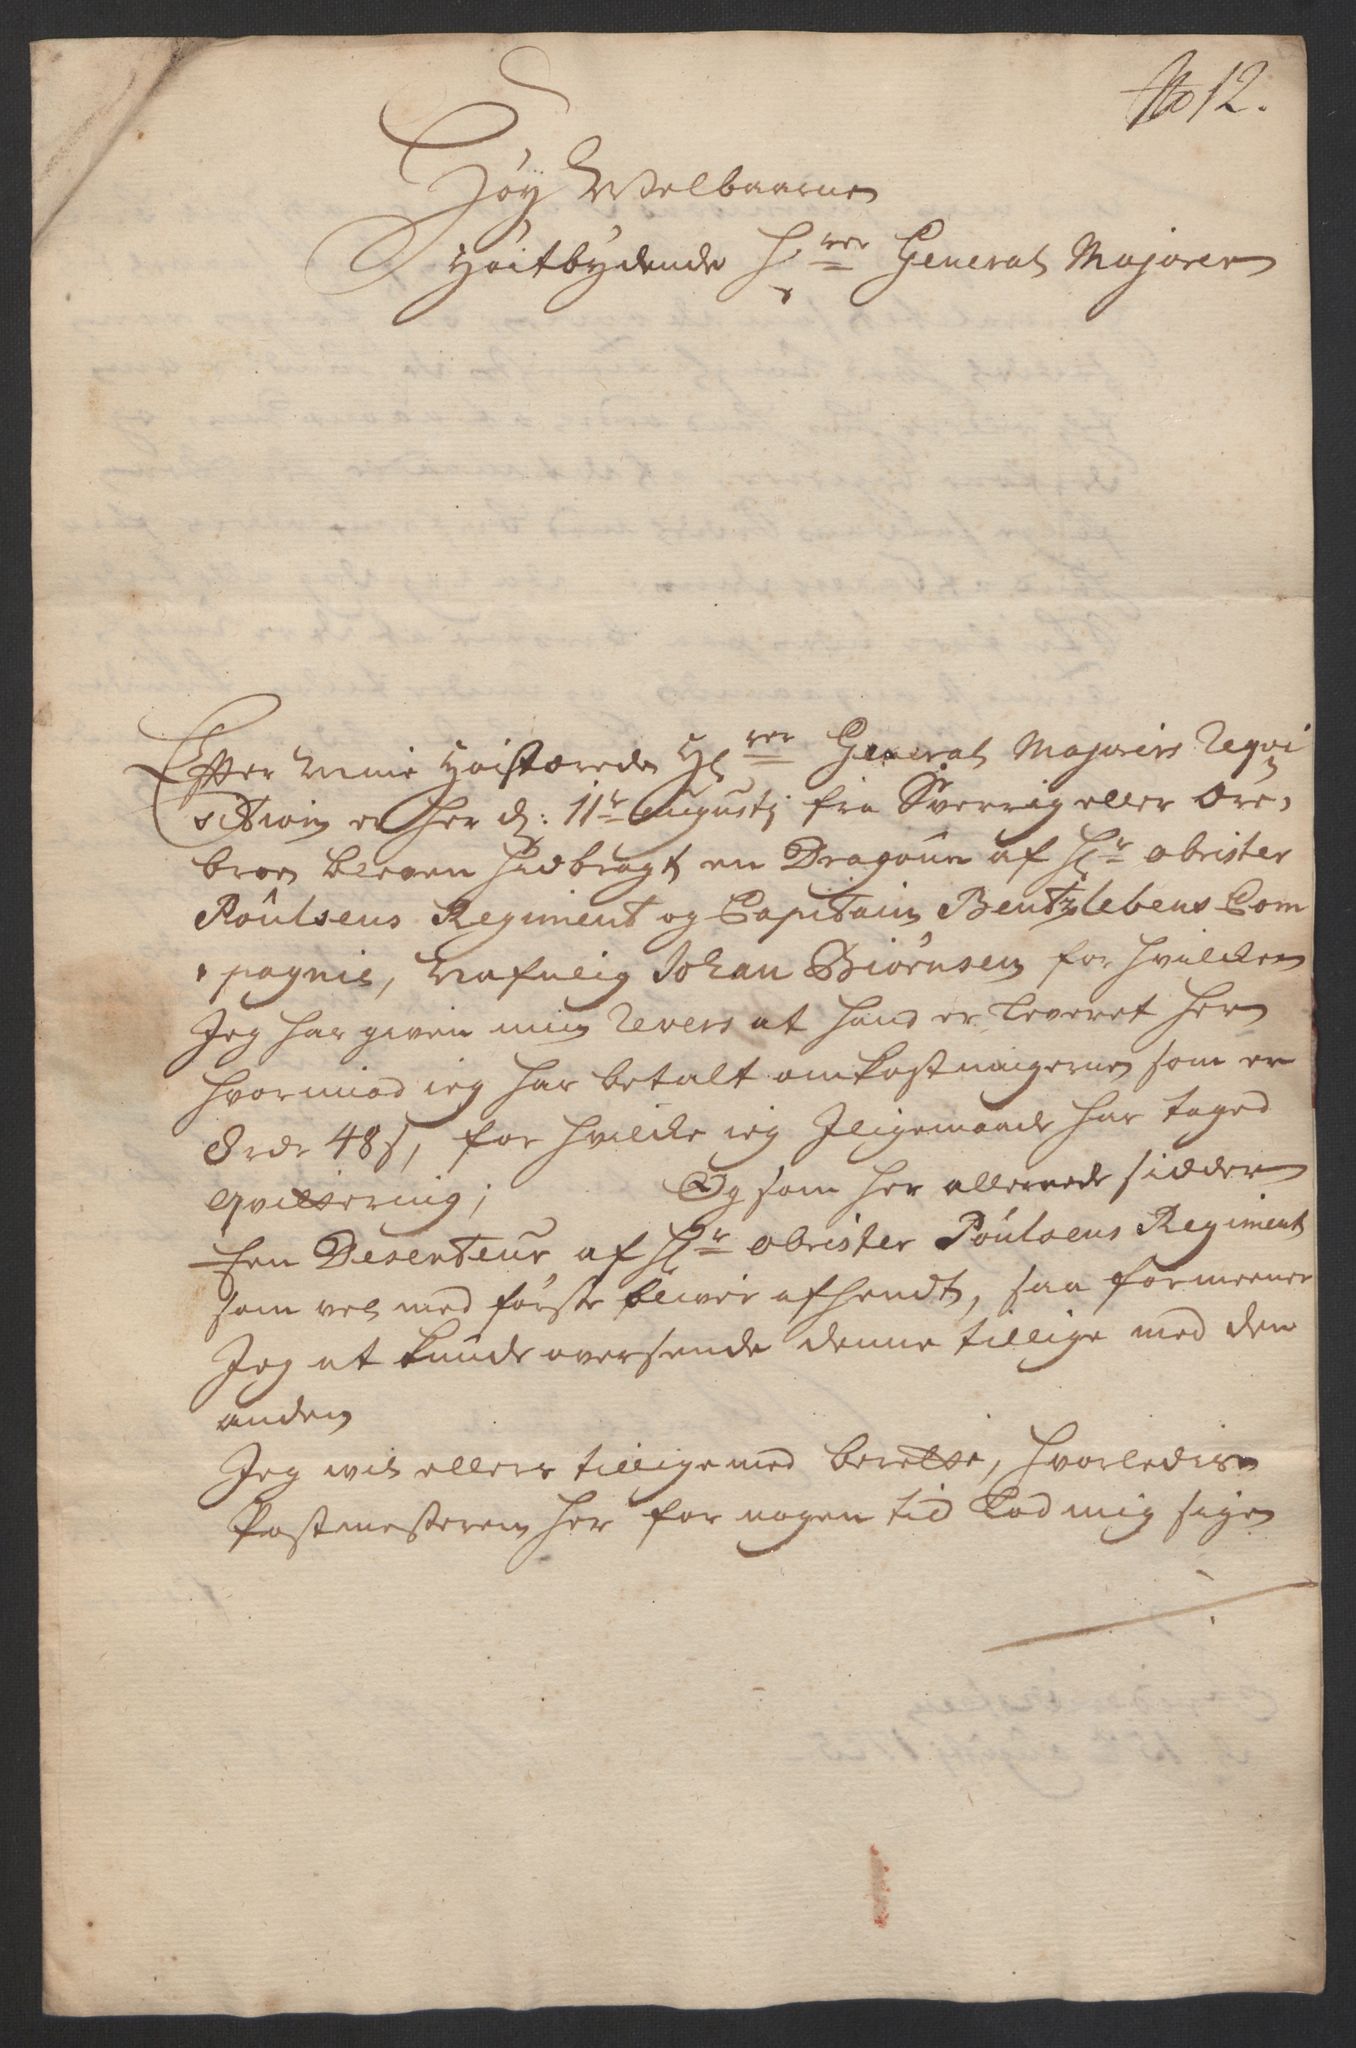 No 12.
Høy Welbaarne
Høitbydende Hr General Majoren
Effter Min Høistærede Hr General Majorens Reqvi
sition er her d: 11te Augustj fra Sverrig eller Øre,
broe bleven hidbragt en Dragoun af Hr obrister
Poulsens Regiment og Capitain Bentzlebens Com
pagnie, Nafnlig Johan Biørnsen for hvilken
Jeg har given min Revers at hand er leveret her
hvormed ieg har betalt omkostningerne som er
8 rdr 48 s, for hvilke ieg Iligemaade har taged
qvittering; Og som her allerede sidder
Een Deserteur af Hr obrister Poulsens Regiment
som vel med første bliver afhendt, saa formeener
Jeg at kunde oversende denne tillige med den
anden
Jeg vil ellers tilligemed berette, hvorledis
Postmesteren her for nogen tid lod mig sige